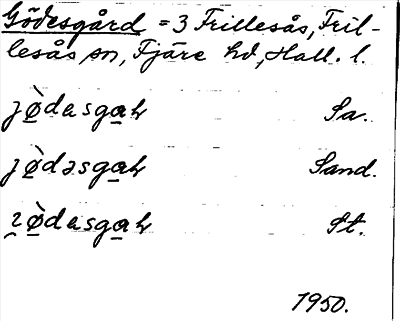 Gödesgård = 3 Frillesås, Fril-
lesås sn, Fjäre hd, Hall. l.
jø̀dasgaɫ Sa.
jø̀dəsgaɫ Sand.
St.
1950.